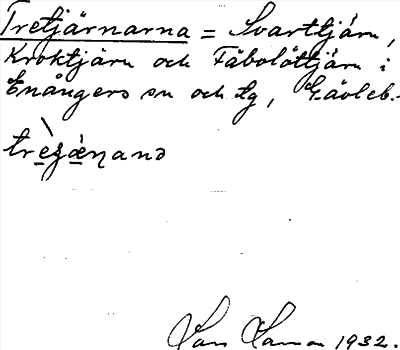 Tretjärnarna = Svarttjärn,
Kroktjärn och Fäbolöttjärn i
Enångers sn och tg, Gävleb.
Lars 1932.